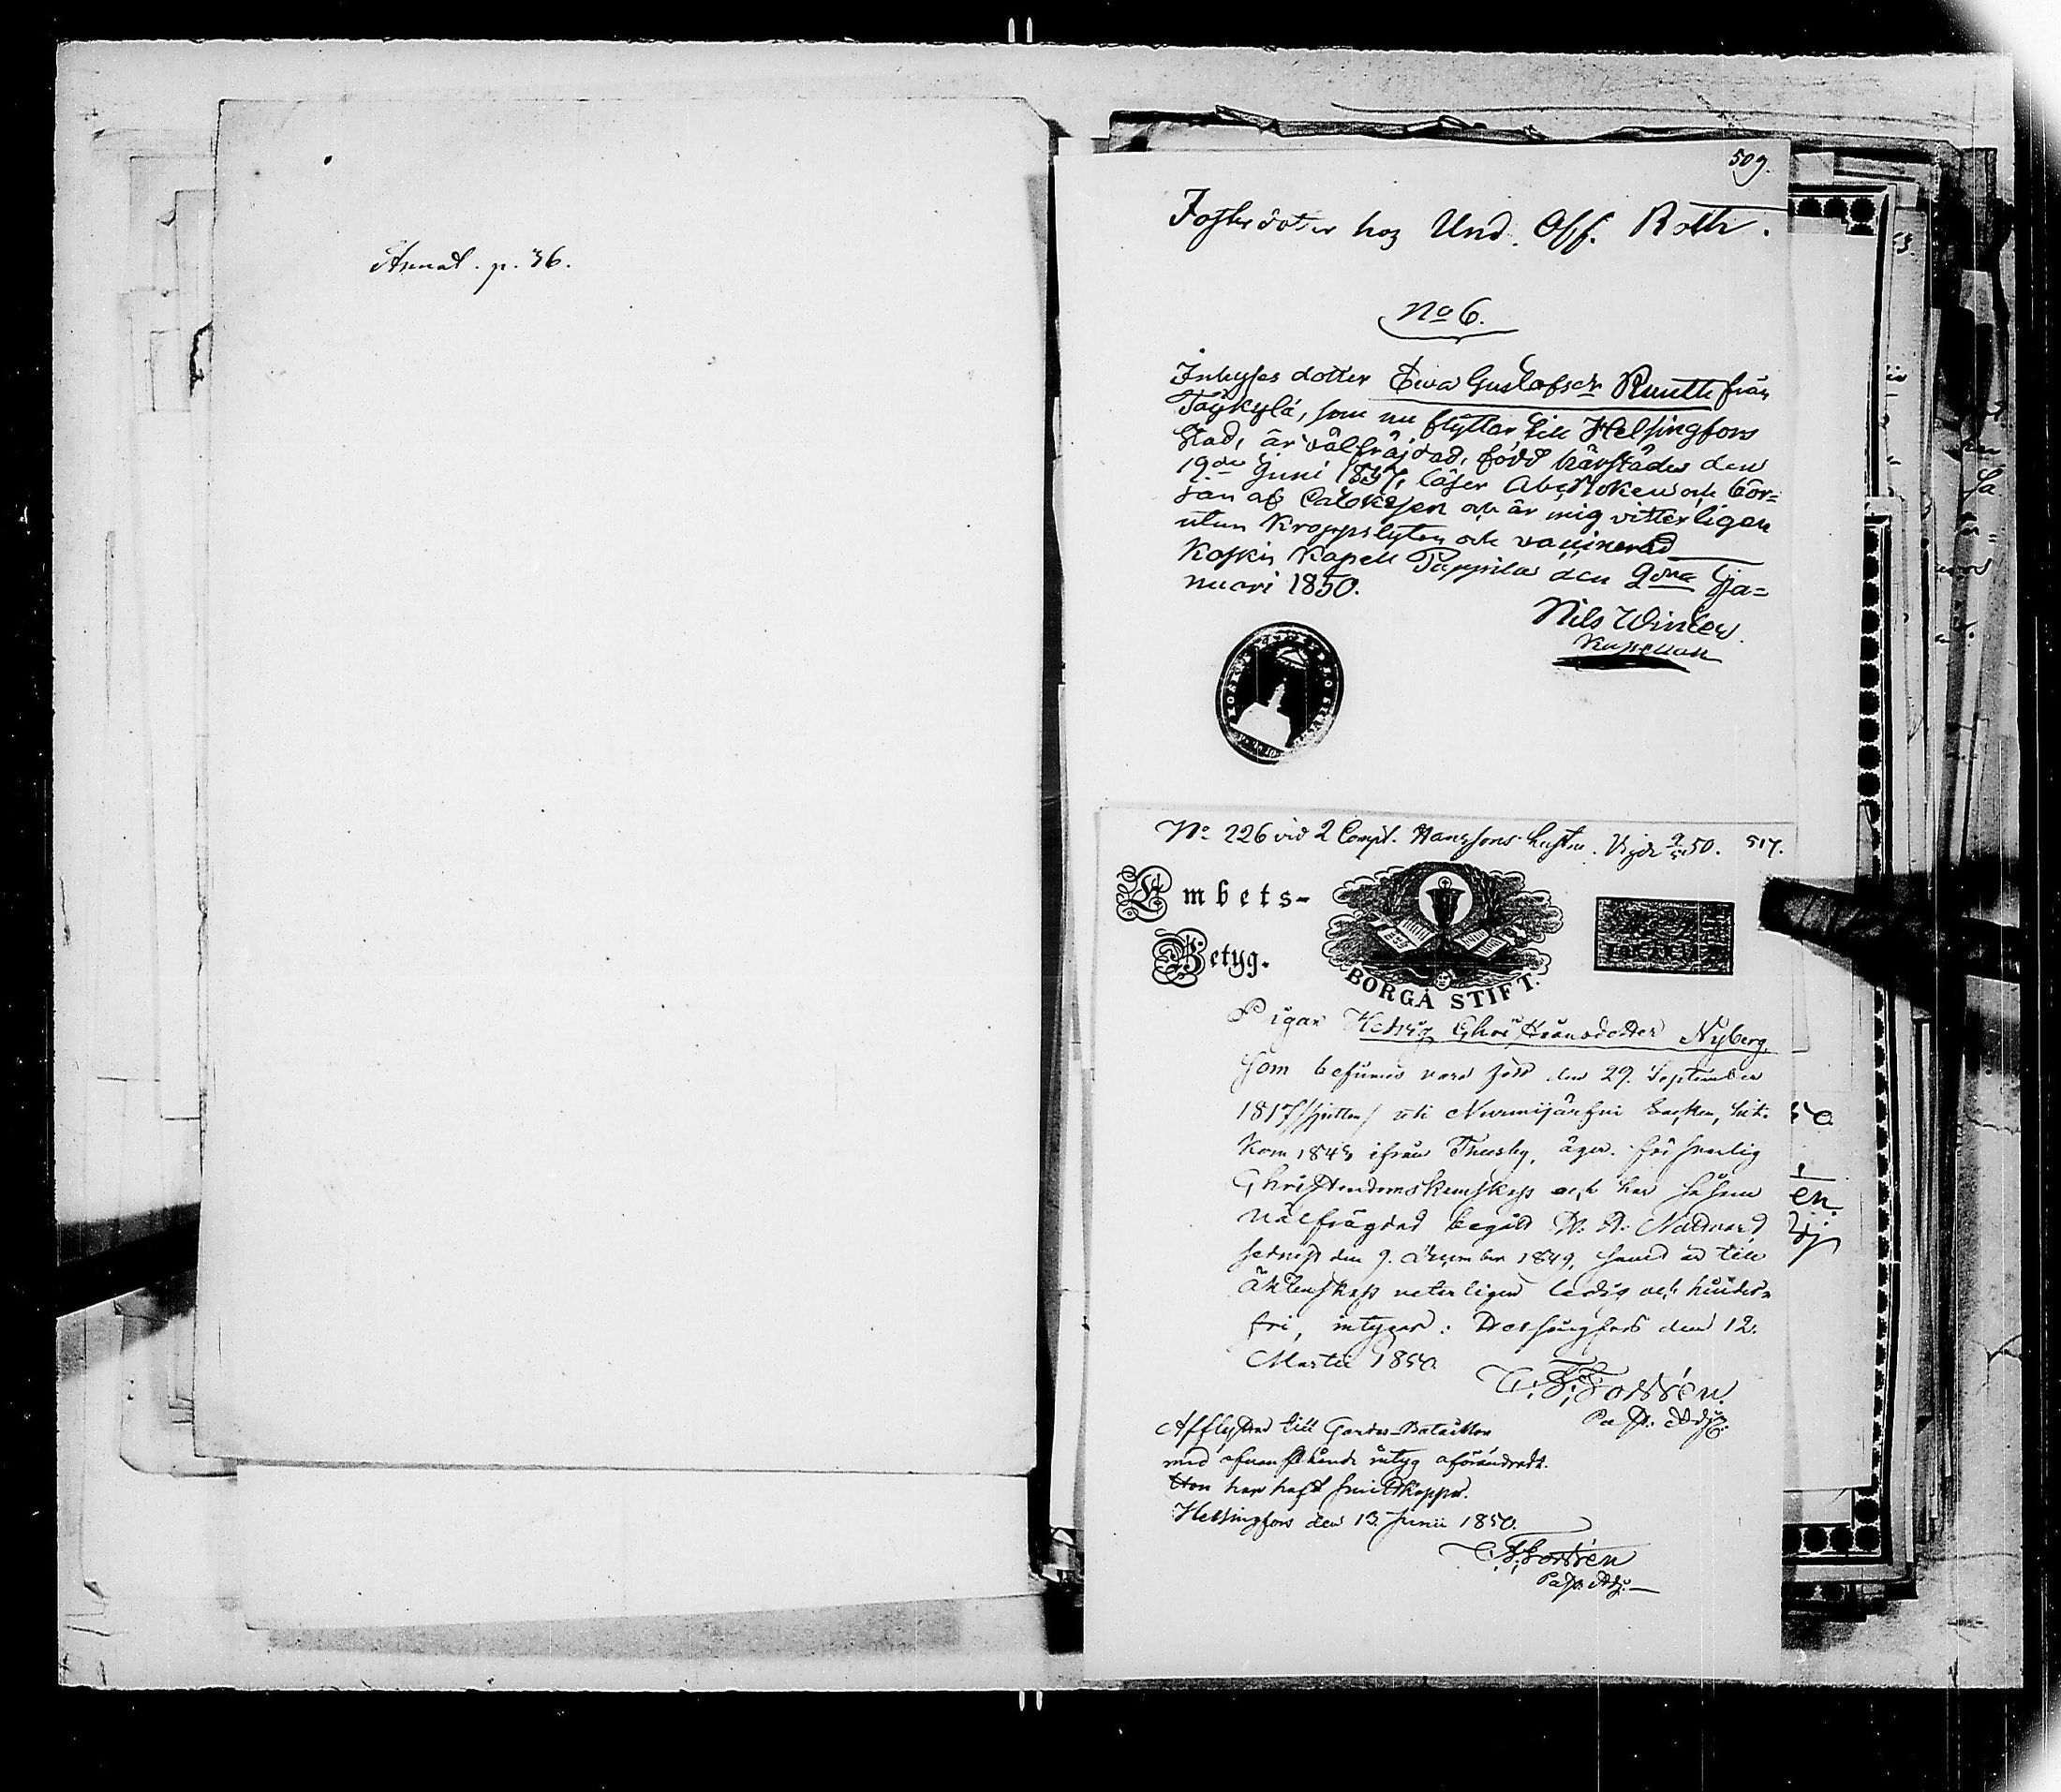 Annat. p. 36.
509.
Fosterdotter hos Und. Off. Roth.
No 6.
Inhyses dotter Ewa Gustafsdr Ruuth från
Täykylä, som nu flyttar till Helsingfors
Stad, är välfräjdad, född härstädes den
19de Juni 1837, läser AbcBoken och bör-
jan af Catekesen och är mig vitterligen
utan Kroppslyten och vaccinerad
Koskis Kapell Pappila den 9de Ja-
nuari 1850.
Nils Winter
Kapellan
No 226 vid 2 Comp. Hanssons hustru. 50. 517.
Embets-
Betyg.
BORGÅ STIFT.
Pigan Hedvig Christiansdotter Nyberg,
som befunnits vara född den 29. September
1817/sjutton/ uti Nurmijärfvi Socken, hit-
kom 1845 ifrån Thusby, äger försvarlig
Christendomskunskap och har såsom
välfrägdad begått H. H. Nattvard
sednast den 9. December 1849, samt är till
äktenskap veterligen ledig och hinders-
fri, intygar: Helsingfors den 12.
Martii 1850.
Forssén
Past. Adj.
Afflyttad till Gardes-Bataillon
med ofvanstående intyg oförändradt.
Hon har haft smittkoppor.
Helsingfors den 13. Junii 1850.
Forssén
Past. Adj.